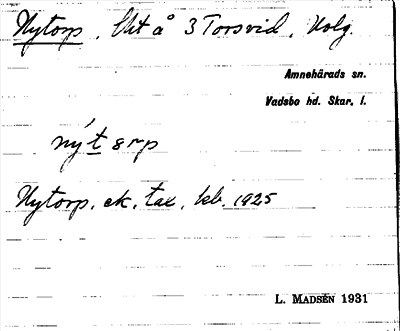 Nytorp, Utå 3 Torsvid, Holg.
Amnehärads sn.
Vadsbo hd. Skar. l.
ny´t ərp
Nytorp, ek, tax, kb. 1925
L. MADSÉN 1931